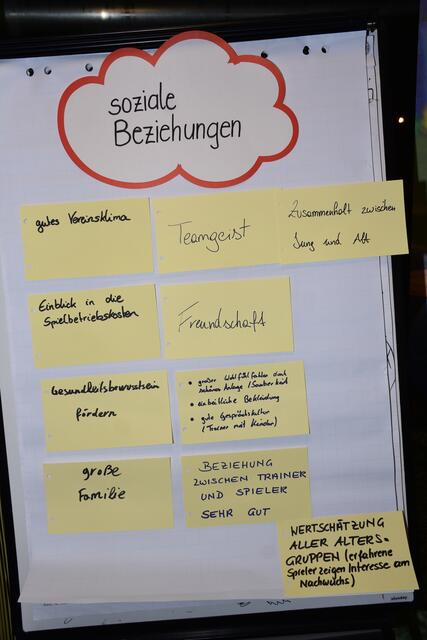 soziale
Beziehungen
gutes Vereinsklima
Teamgeist
Zusammenhalt zwischen
Jung und Alt
Einblick in die
Spielbetriebskosten
Freundschaft
Gesundheitsbewusstsein
fördern
• großer Wohlfühlfaktor durch
schöne Anlage / Sauberkeit
• einheitliche Bekleidung
• gute Gesprächskultur
(Trainer mit Kinder)
große
Familie
BEZIEHUNG
ZWISCHEN TRAINER
UND SPIELER
SEHR GUT
WERTSCHÄTZUNG
ALLER ALTERS-
GRUPPEN (erfahrene
Spieler zeigen Interesse am
Nachwuchs)